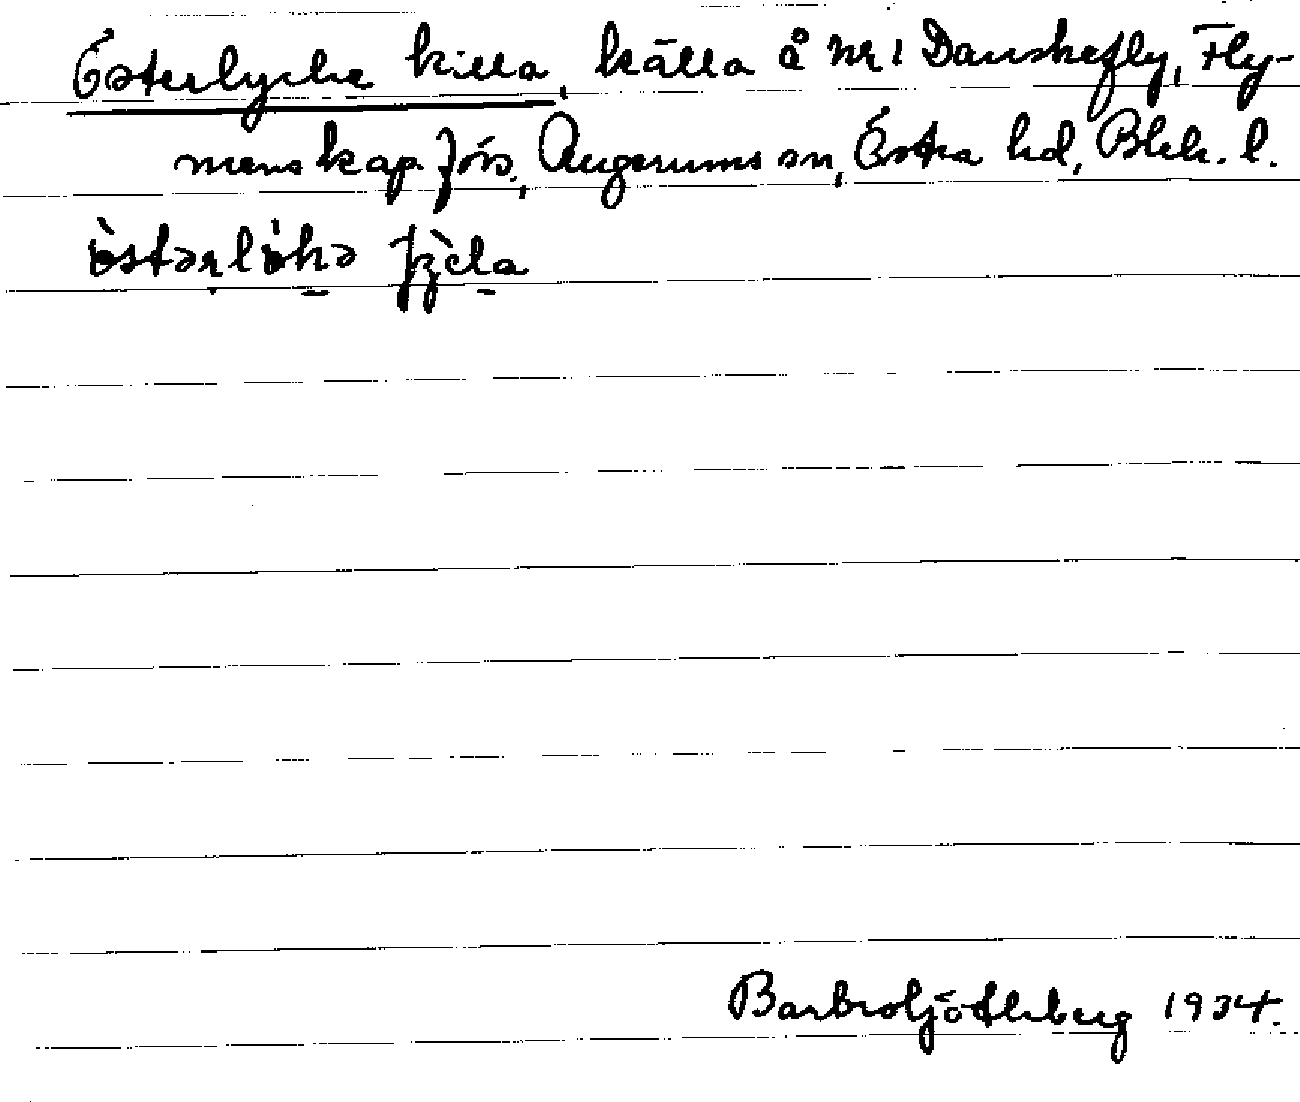 Österlycke killa, källa å nr 1 Danskefly, Fly-
menskap förs., Augerums sn, Östra hd, Blek. l.
östərlökə
Barbro Ljöthberg 1934.